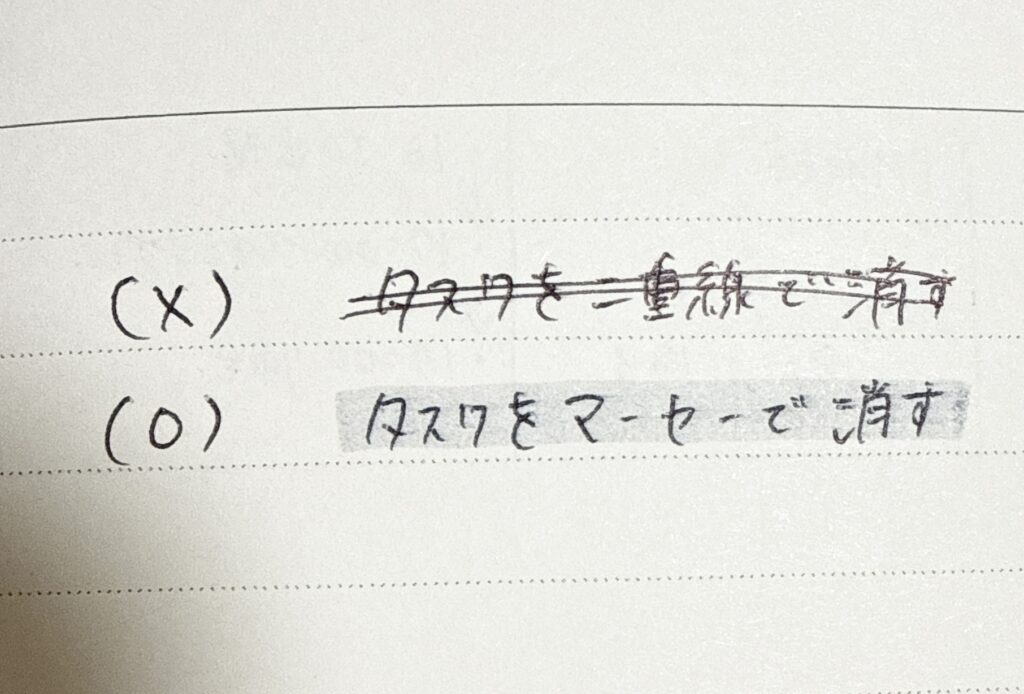 (×) タスクを二重線で消す
(○) タスクをマーカーで消す